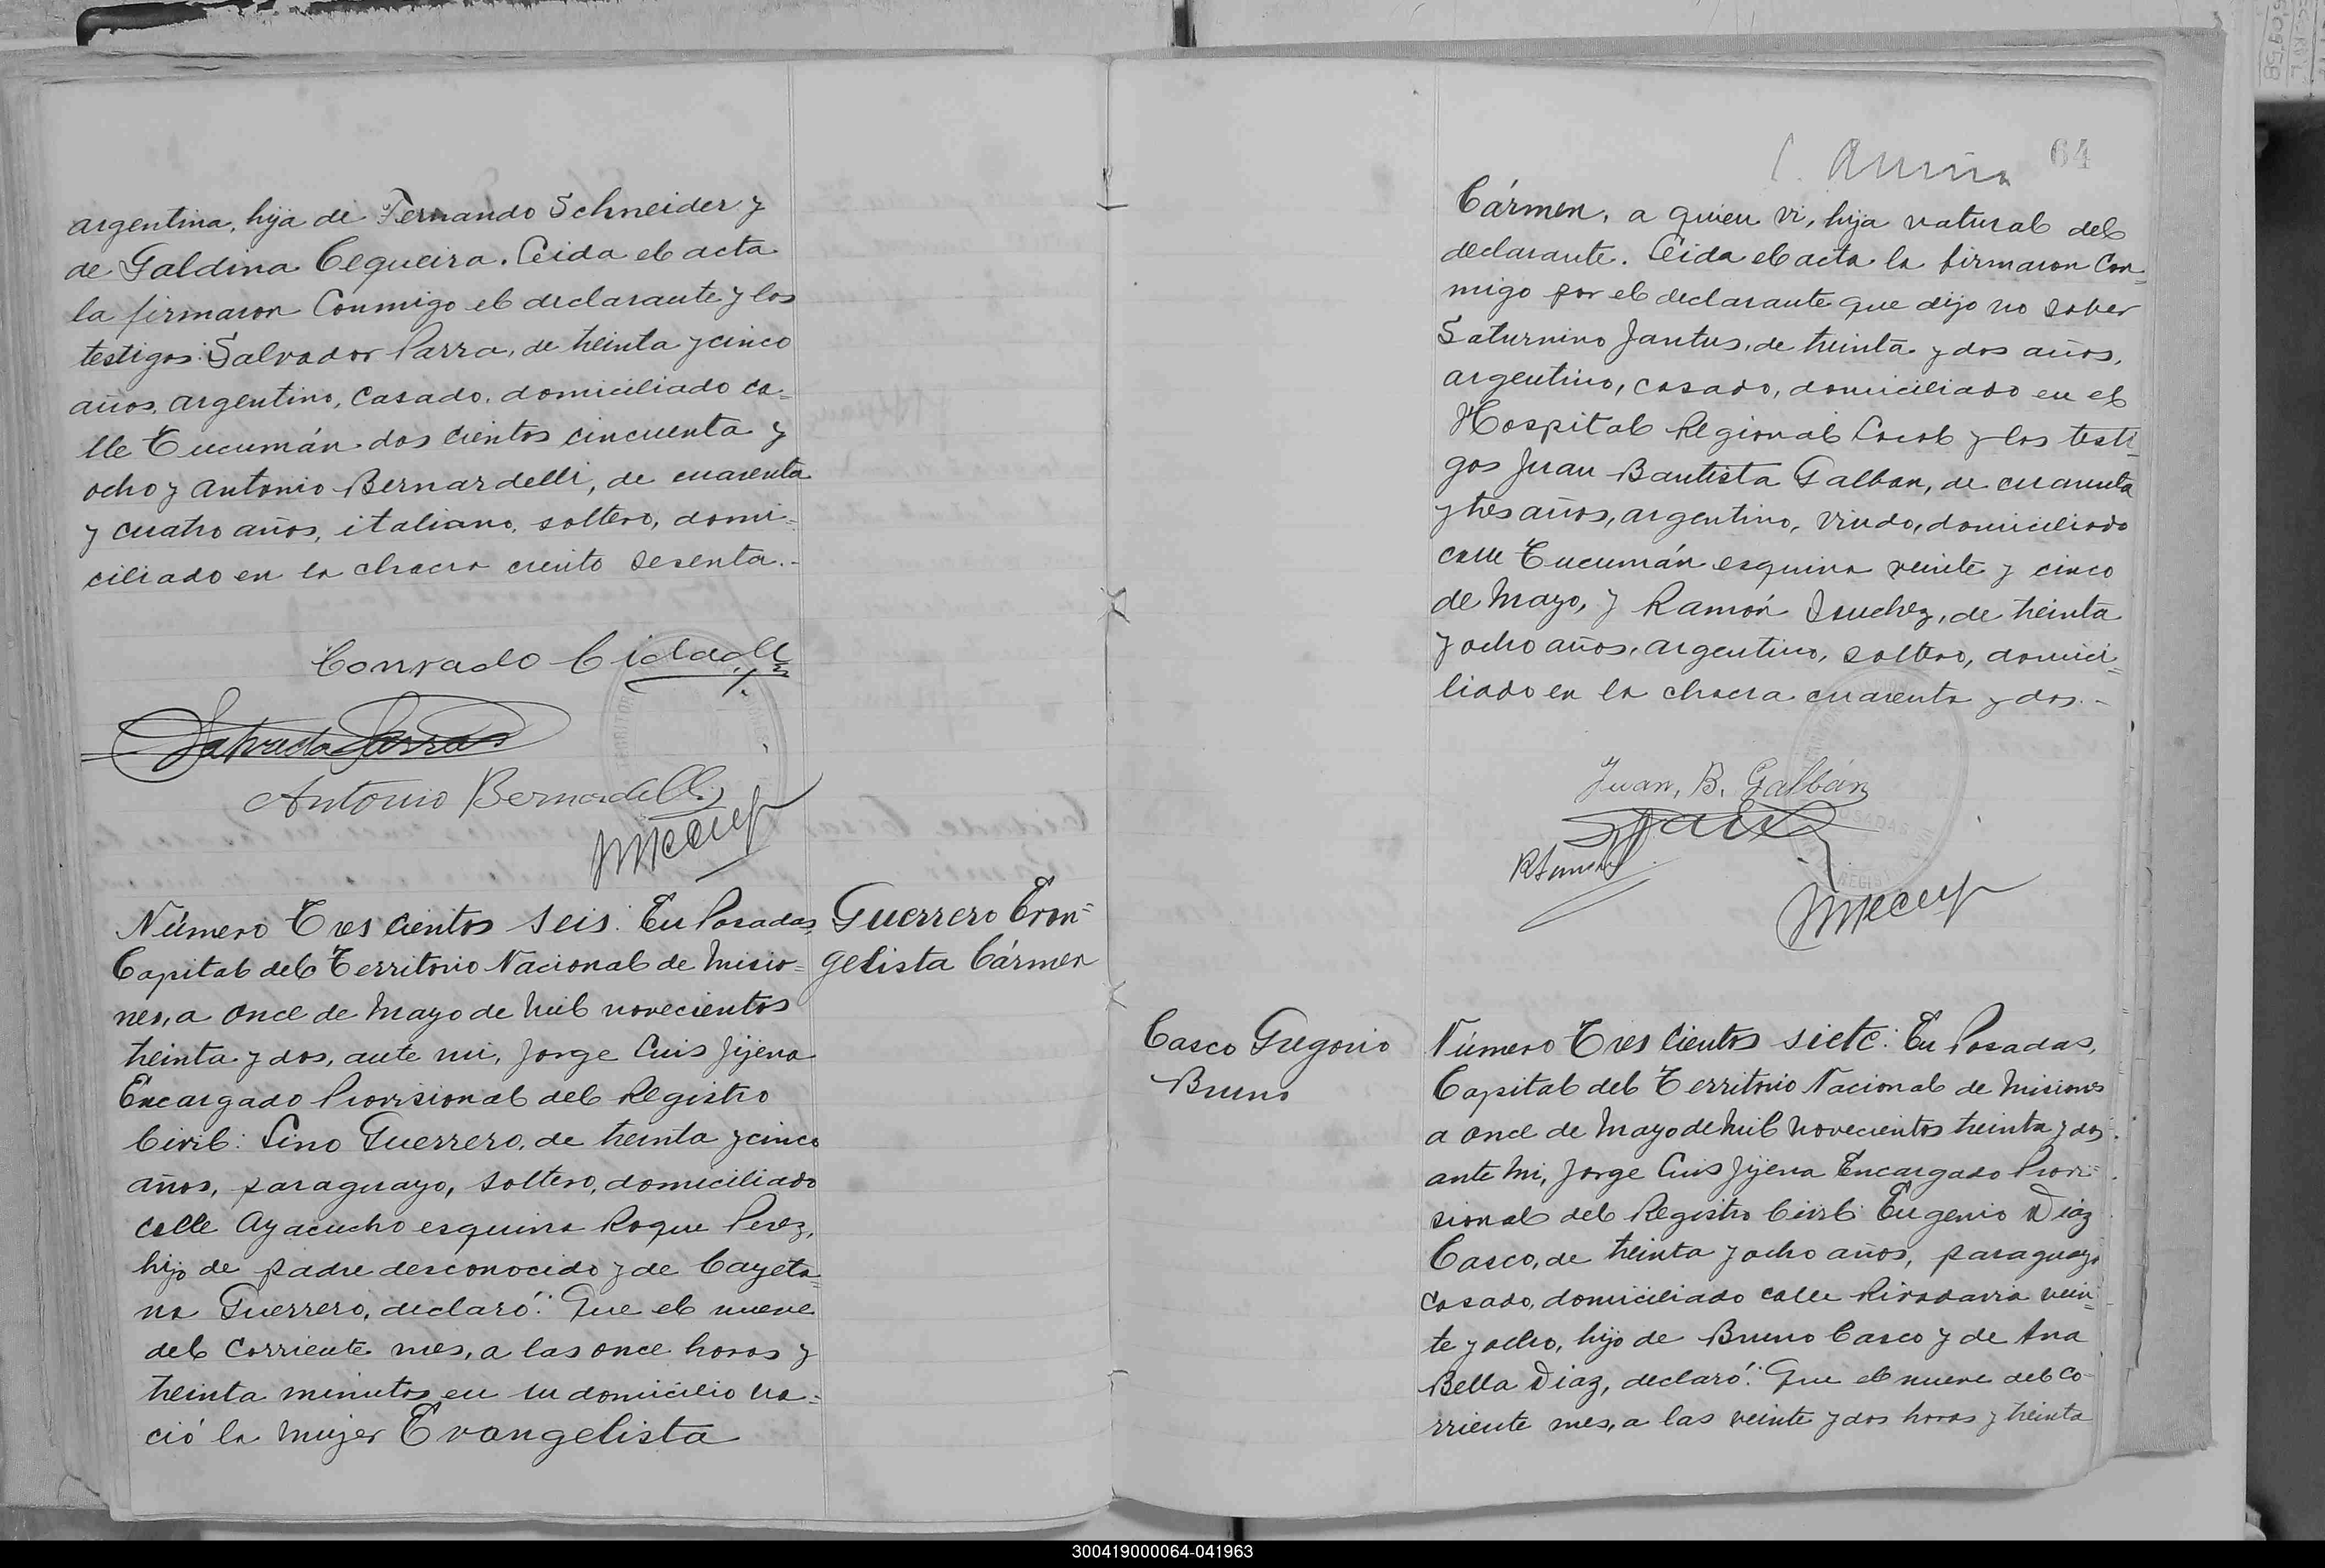 argentina, hija de Fernando Schneider y
de Galdina Cequeira. Leida el acta
la firmaron Conmigo el declarante y los
testigos: Salvador Parra, de treinta y cinco
años, argentino, Casado, domiciliado ca=
lle Tucumán dos cientos cincuenta y
ocho y Antonio Bernardelli, de cuarenta
y cuatro años, italiano, soltero, domi=
ciliado en la chacra ciento sesenta.-
Conrado
Salvador Parra
Antonio Bernardelli
Número Tres cientos seis: En Posadas,
Capital del Territorio Nacional de Misio=
nes, a once de Mayo de Mil novecientos
treinta y dos, ante mi, Jorge Luis Jijena
Encargado Provisional del Registro
Civil: Lino Guerrero, de treinta y cinco
años, paraguayo, soltero, domiciliado
calle Ayacucho esquina Roque Perez,
hijo de padre desconocido y de Cayeta=
na Guerrero, declaró: Que el nueve
del Corriente mes, a las once horas y
treinta minutos en su domicilio na=
ció la mujer Evangelista
Guerrero Evan=
gelista Cármen
64
Cármen, a quien vi, hija natural del
declarante. Leida el acta la firmaron Con=
migo por el declarante que dijo no saber
Saturnino Jantus, de treinta y dos años,
argentino, casado, domiciliado en el
Hospital Regional Local y los testi=
gos Juan Bautista Galban, de cuarenta
y tres años, argentino, viudo, domiciliado
calle Tucumán esquina veinte y cinco
de Mayo, y Ramón Sanchez, de treinta
y ocho años, argentino, soltero, domici=
liado en la chacra cuarenta y dos.-
Juan, B. Galbán
Casco Gregorio
Bruno
Número Tres cientos siete: En Posadas,
Capital del Territorio Nacional de Misiones
a once de Mayo de Mil Novecientos treinta y dos,
ante Mi, Jorge Luis Jijena Encargado Provi=
sional del Registro Civil: Eugenio Diaz
Casco, de treinta y ocho años, paraguayo
casado, domiciliado calle Rivadavia vein=
te y ocho, hijo de Bruno Casco y de Ana
Bella Diaz, declaró: Que el nueve del Co=
rriente mes, a las veinte y dos horas y treinta
300419000064-041963